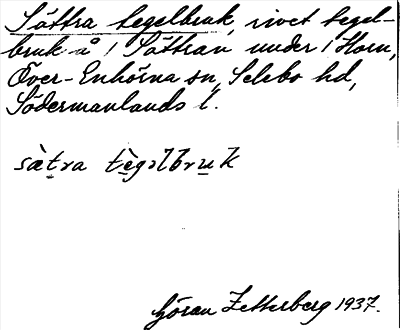 Sättra tegelbruk, rivet tegel-
bruk å 1 Sättran under 1 Horn,
Över-Enhörna sn, Selebo hd,
Södermanlands l.
sὰtra tὲgəlbruk
Göran Zetterberg 1937.